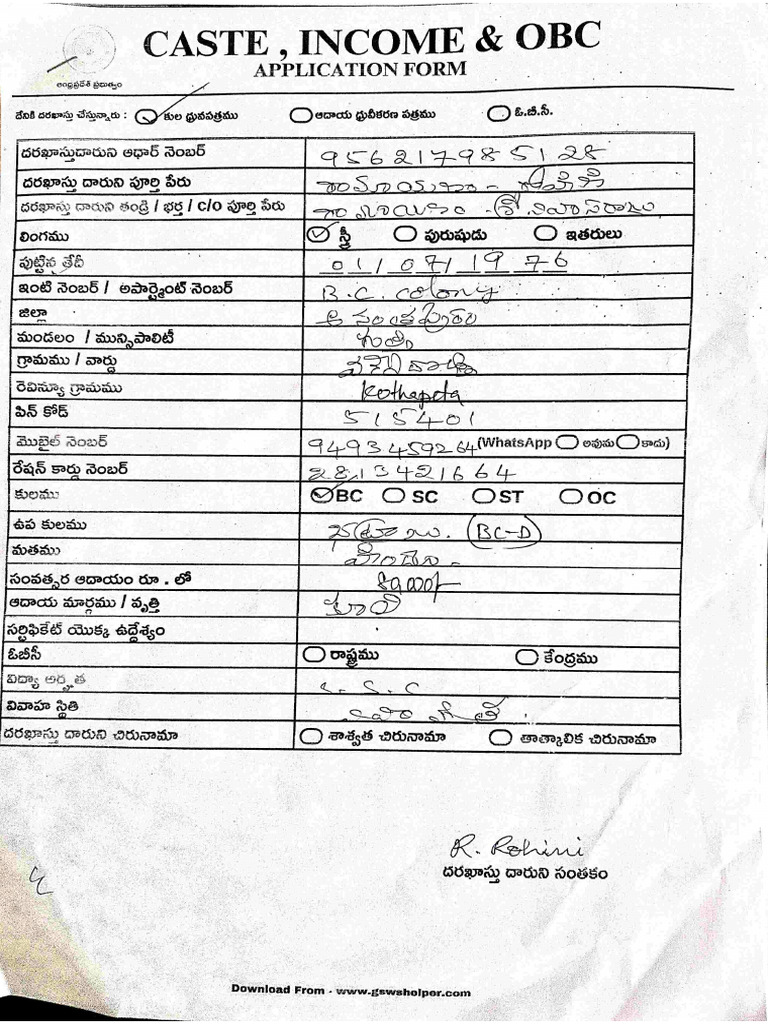 CASTE , INCOME & OBC
APPLICATION FORM
ఆంధ్రప్రదేశ్ ప్రభుత్వం
దేనికి దరఖాస్తు చేస్తున్నారు : కుల ధ్రువపత్రము ఆదాయ ధ్రువీకరణ పత్రము ఓ.బీ.సీ.
దరఖాస్తుదారుని ఆధార్ నెంబర్ 956217985128
దరఖాస్తు దారుని పూర్తి పేరు రామాయణం - రోహిణి
దరఖాస్తు దారుని తండ్రి / భర్త / c/o పూర్తి పేరు రామాయణం - శ్రీనివాసరాజు
లింగము స్త్రీ పురుషుడు ఇతరులు
పుట్టిన త్రేదీ 01/07/1976
ఇంటి నెంబర్ / అపార్ట్మెంట్ నెంబర్ B.C. colony
జిల్లా అనంతపురం
మండలం / మున్సిపాలిటీ గుత్తి
గ్రామము / వార్డు
రెవిన్యూ గ్రామము Kothapeta
పిన్ కోడ్ 515401
మొబైల్ నెంబర్ 9493459264 (WhatsApp అవును కాదు)
రేషన్ కార్డు నెంబర్ 2813421664
కులము BC SC ST OC
ఉప కులము (BC-D)
మతము హిందూ -
సంవత్సర ఆదాయం రూ . లో
ఆదాయ మార్గము / వృత్తి కూలి
సర్టిఫికేట్ యొక్క ఉద్దేశ్యం
ఓబీసీ రాష్ట్రము కేంద్రము
విద్యా అర్హత S.S.C
వివాహ స్థితి వివాహిత
దరఖాస్తు దారుని చిరునామా శాశ్వత చిరునామా తాత్కాలిక చిరునామా
R. Rohini
దరఖాస్తు దారుని సంతకం
Download From - www.gswshelper.com